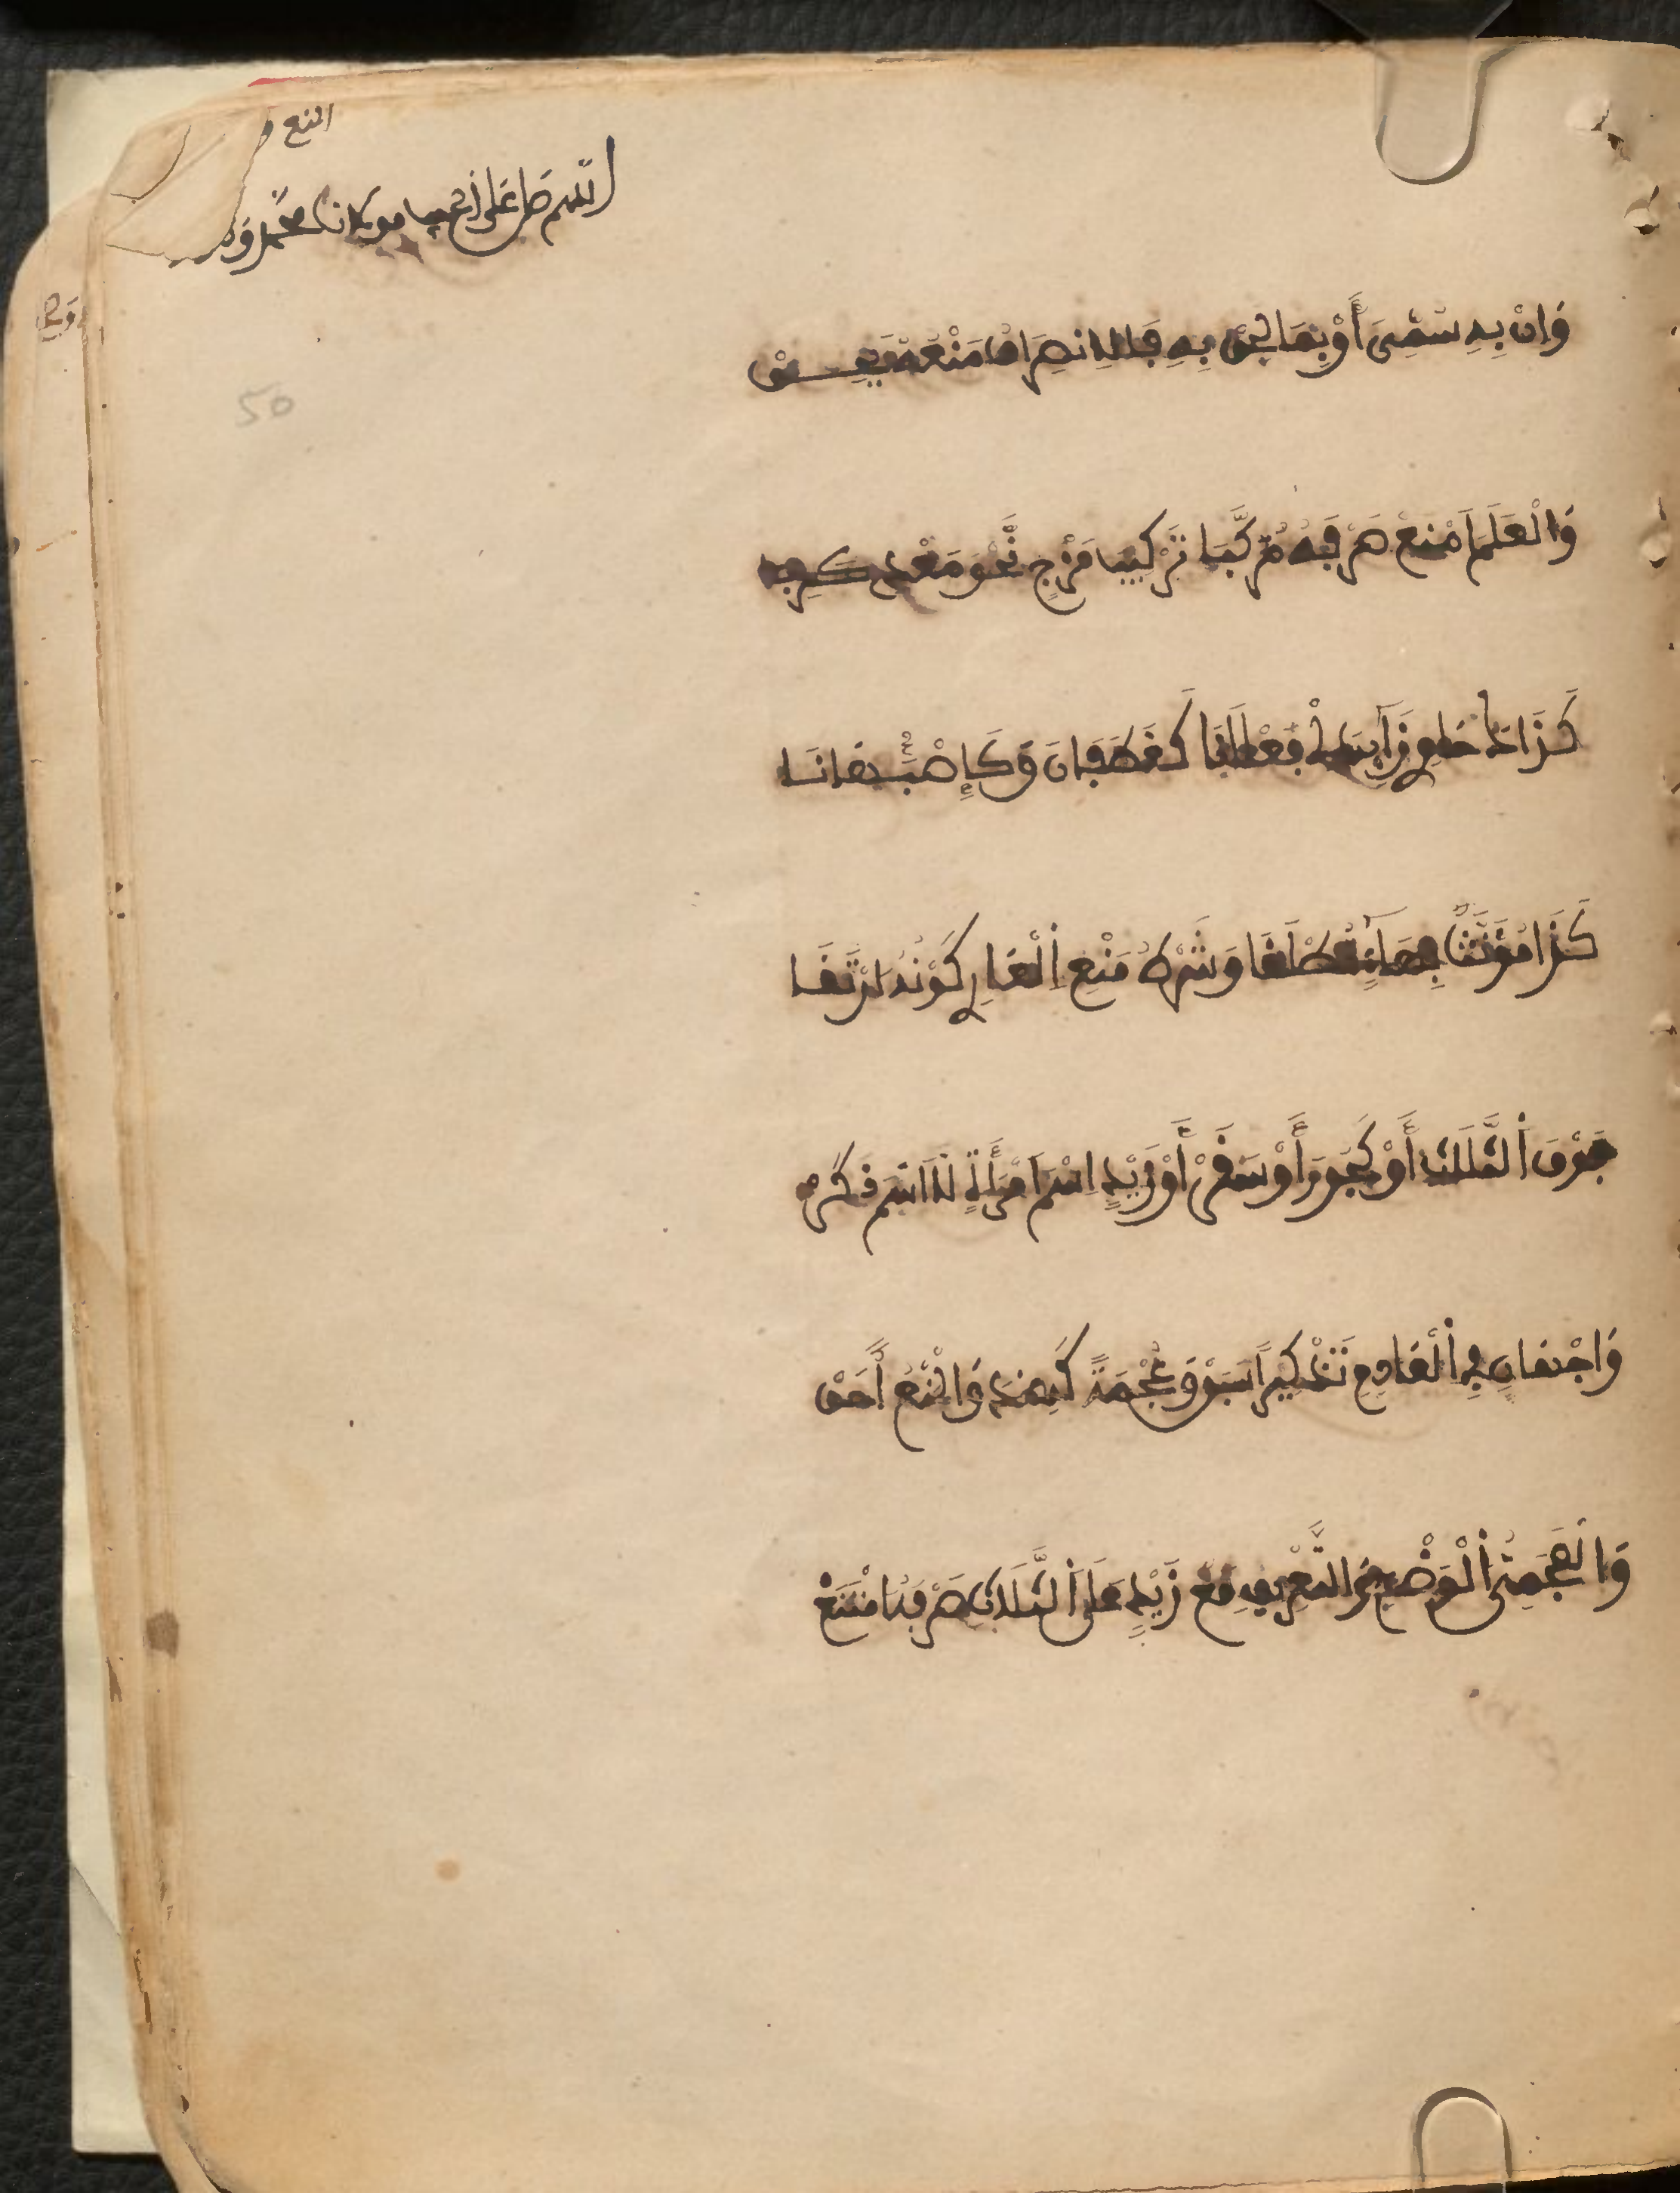 المنع و
اللهم صل على الحبيب مولانا محمد و
وَإِنْ بِهِ سُمِّيَ أَوْ بِمَا لُحِقْ بِهِ فَالِانْصِرَافُ مَنْعُهُ يَحِقْ
50
وَالْعَلَمَ امْنَعْ صَرْفَهُ مُرَكَّبَا تَرْكِيبَ مَزْجٍ نَحْوُ مَعْدِ كَرِبَا
كَذَاكَ حَاوِي زَائِدَيْ فَعْلَانَا كَغَطَفَانَ وَكَإِصْبَهَانَا
كَذَا مُؤَنَّثٌ بِهَاءٍ مُطْلَقَا وَشَرْطُ مَنْعِ الْعَارِ كَوْنُهُ ارْتَقَى
فَوْقَ الثَّلَاثِ أَوْ كَجُورَ أَوْ سَقَرْ أَوْ زَيْدٍ اسْمَ امْرَأَةٍ لَا اسْمَ ذَكَرْ
وَجْهَانِ فِي الْعَادِمِ تَذْكِيرًا سَبَقْ وَعُجْمَةً كَهِنْدَ وَالْمَنْعُ أَحَقْ
وَالْعَجَمِيُّ الْوَضْعِ وَالتَّعْرِيفِ مَعْ زَيْدٍ عَلَى الثَّلَاثِ صَرْفُهُ امْتَنَعْ